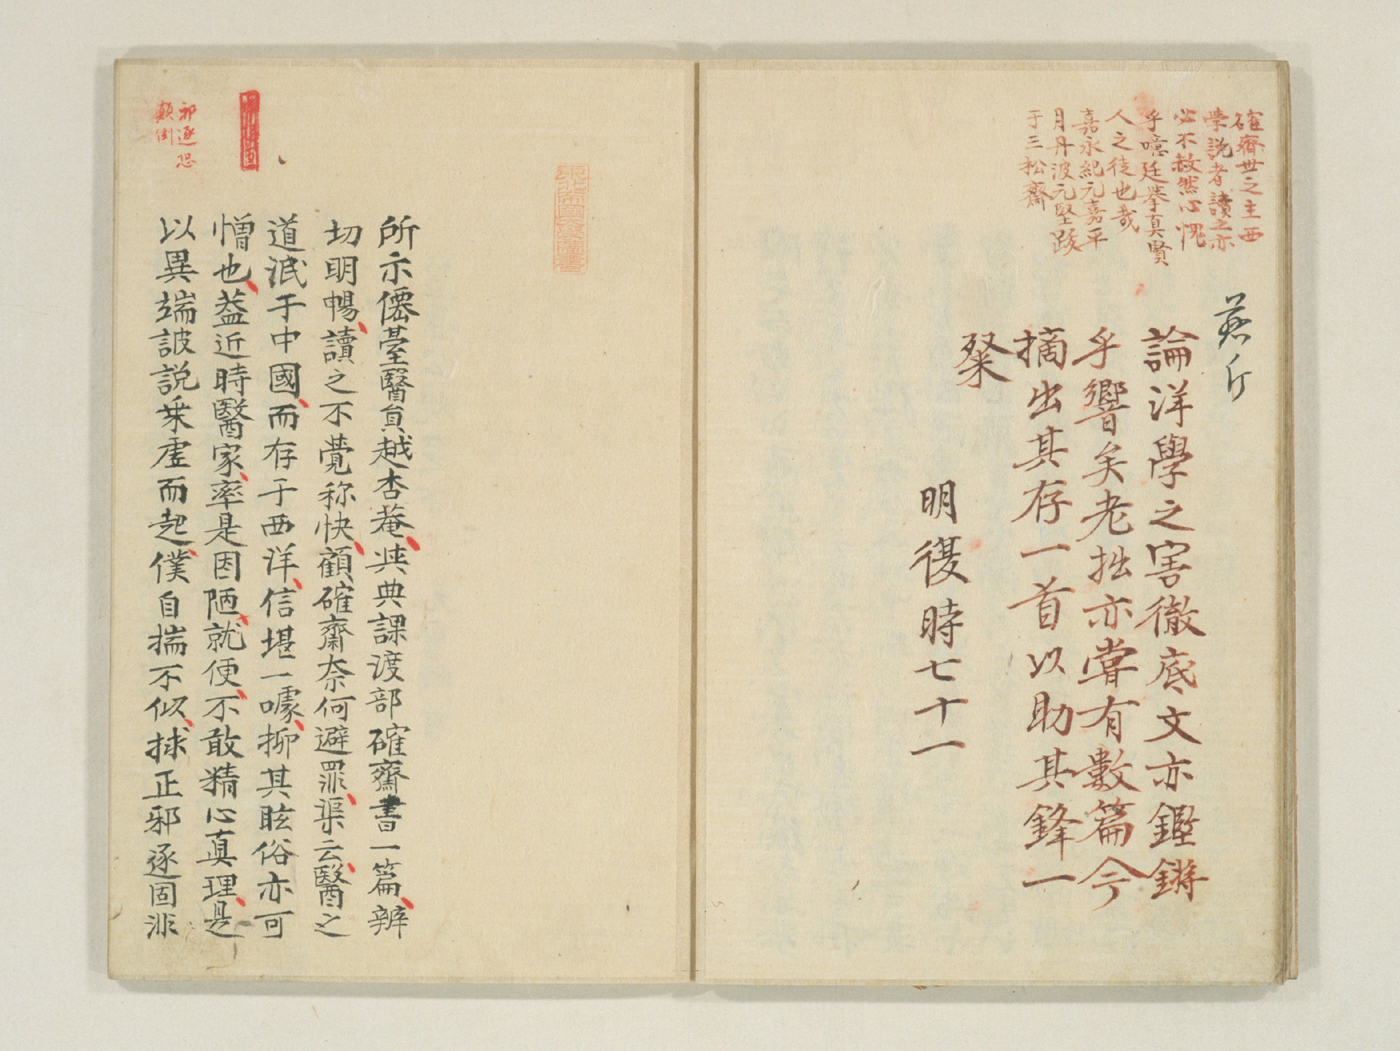 確齋世之主西
學説者讀之亦
必不赧然心愧
乎噫廷挙真賢
人之徒也哉
嘉永紀元嘉平
月丹波元堅跋
于三松齋
論洋學之害徹底文亦鏗鏘
乎響矣老拙亦嘗有數篇今
摘出其存一首以助其鋒一
粲
明復時七十一
所示僊臺醫員越杏菴、與典課渡部確齋書一篇、辨
切明暢、讀之不覺称快、顧確齋奈何避罪、渠云、醫之
道泯于中國、而存于西洋、信堪一噱、抑其眩俗亦可
憎也、蓋近時醫家、率是因陋、就便、不敢精心真理、是
以異端詖説乗虚而起、僕自揣不似、抹正邪逐固非
邪逐恐
顛倒